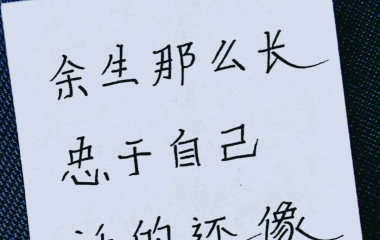 余生那么长
忠于自己
活的还像